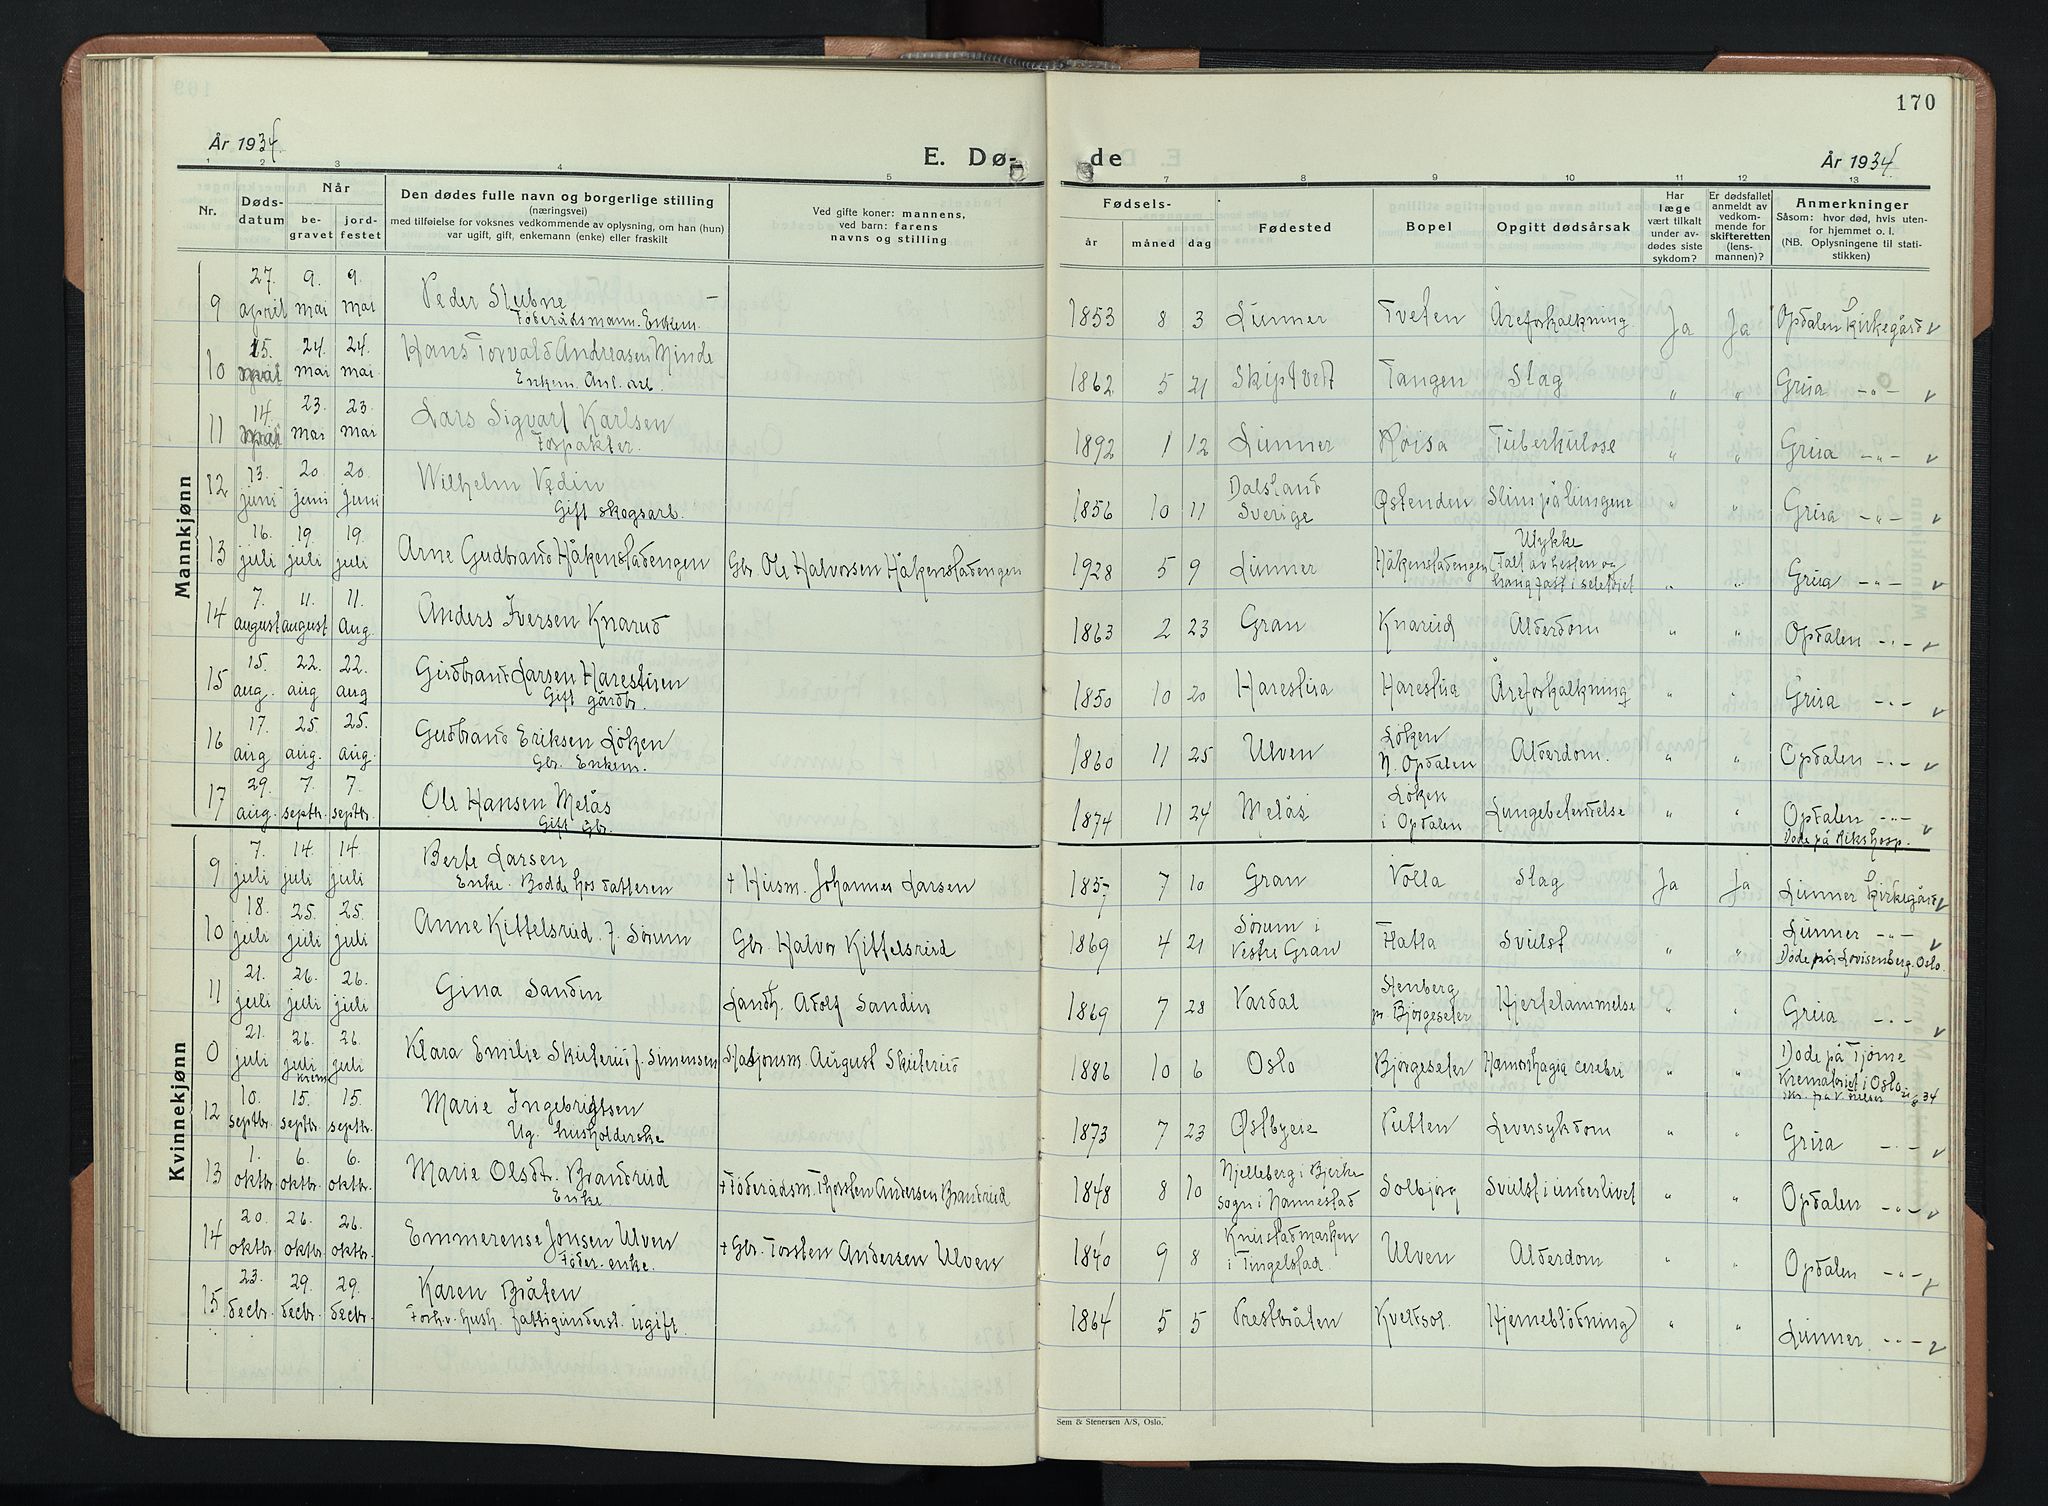 170
År 1934
E. Dø-
de
År 1934.
1 2 3 4 5 7 8 9 10 11 12 13
Nr.
Dødsdatum
Når
begravet
jordfestet
Den dødes fulle navn og borgerlige stilling
(næringsvei)
med tilføielse for voksnes vedkommende av oplysning, om han (hun)
var ugift, gift, enkemann (enke) eller fraskilt
Ved gifte koner: mannens,
ved barn: farens
navns og stilling
Fødsels-
år måned dag
Fødested
Bopel
Opgitt dødsårsak
Har
læge
vært tilkalt
under avdødes siste
sykdom?
Er dødsfallet
anmeldt av
vedkommende for
skifteretten
(lensmannen)?
Anmerkninger
Såsom: hvor død, hvis utenfor hjemmet o. l.
(NB. Oplysningene til statistikken)
Mannkjønn
9 27. april 9. mai 9. mai Peder Stubne Føderådsmann. Enkem. 1853 8 3 Lunner Tveten Åreforkalkning Ja Ja Opdalen Kirkegård
10 15. 24. mai 24. mai Hans Torvald Andreasen Minde Enkem. Anl. arb. 1862 5 21 Skiptvedt Tangen Slag " " Grua -"-
11 14. 23. mai 23. mai Lars Sigvart Karlsen Forpakter. 1892 1 12 Lunner Roisa Tuberkulose " " Grua -"-
12 13. juni 20. juni 20. juni Wilhelm Vedin Gift skogsarb. 1856 10 11 Dalsland Sverige Østenden Slim på lungene " " Grua -"-
13 16. juli 19. juli 19. juli Arne Gudbrand Håkenstadengen Gbr. Ole Halvorsen Håkenstadengen 1928 5 9 Lunner Håkenstadengen Ulykke (Falt av hesten og hang fast i seletøiet " " Grua -"-
14 7. august 11. august 11. Aug. Anders Iversen Knarud 1863 2 23 Gran Knarud Alderdom " " Opdalen -"-
15 15. aug. 22. aug 22. aug Gudbrand Larsen Harestuen Gift gårdbr. 1850 10 20 Harestua Harestua Åreforkalkning " " Grua -"-
16 17. aug 25. aug. 25. aug. Gudbrand Eriksen Løken Gbr. Enkem. 1860 11 25 Ulven Løken N. Opdalen Alderdom. " " Opdalen -"-
17 29. aug. 7. septbr. 7. septbr. Ole Hansen Melås Gift Gbr. 1874 11 24 Melås Løken i Opdalen Lungebetendelse " " Opdalen -"- Døde på Rikshosp.
Kvinnekjønn
9 7. juli 14. juli 14. juli Berte Larsen Enke. Bodde hos datteren + Husm. Johannes Larsen 1857 7 10 Gran Volla Slag Ja Ja Lunner Kirkegård
10 18. juli 25. juli 25. juli Anne Kittelsrud f. Sørum Gbr. Halvor Kittelsrud 1869 4 21 Sørum i Vestre Gran Flatla Svulst " " Lunner -"- Døde på Lovisenberg. Oslo.
11 21. juli 26. juli 26. juli Gina Sandin Landh. Adolf Sandin 1869 7 28 Vardal Stenberg pr. Bjørgeseter Hjertelammelse " " Grua -"-
0 21. juli 26. juli Krem. 26. juli Klara Emilie Skuterud f. Simensen Stasjonsm. August Skuterud 1886 10 6 Oslo Bjørgeseter Hæmorrhagia cerebri " " Døde på Tjøme Krematoriet i Oslo
12 10. septbr. 15. septbr. 15. septbr. Marie Ingebrigtsen Ug. husholderske 1873 7 23 Østbyeie Putten Leversykdom " " Grua -"-
13 1. oktbr. 6. oktbr. 6. oktbr. Marie Olsdtr. Brandrud Enke + Føderådsm. Thorsten Andersen Brandrud 1848 8 10 Njelleberg i Bjerke sogn i Nannestad Solbjørg Svulst i underlivet " " Opdalen -"-
14 20. oktbr. 26. oktbr. 26. oktbr. Emmerense Jonsen Ulven Føder. enke. + Gbr. Torsten Andersen Ulven 1840 9 8 Knustadmarken i Tingelstad. Ulven Alderdom " " Opdalen -"-
15 23. decbr. 29. decbr. 29. decbr. Karen Bråten Forhv. hush. fattigunderst. ugift. 1864 5 5 Prestbråten Kveldsol. Hjerneblødning " " Lunner. -"-
Sem & Stenersen A/S, Oslo.